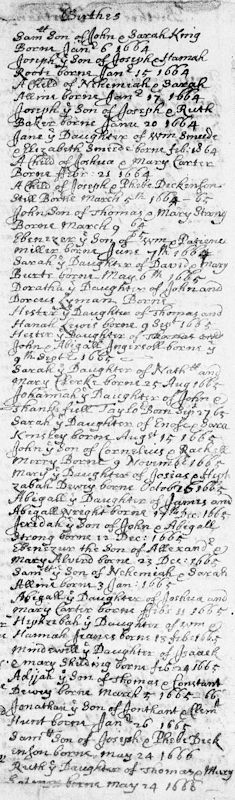 Births
Sam:ll Son of John & Sarah King
Borne Jan: 6 1664
Joseph ye Son of Joseph & Hannah
Roote borne Jan: 15 1664
A Child of Nehemiah & Sarah
Allin borne Jan: 17 1664
Joseph ye Son of Joseph & Ruth
Baker borne June 20 1664
Jane ye Daughter of Wm Smeede
& Elizabeth Smeede borne feb: 1664
A Child of Joshua & Mary Carter
Borne ffebr: 21 1664
A Child of Joseph & Phebe Dickenson
Still Borne March 5th 1664-65
John Son of Thomas & Mary Strong
Borne March 9 65
Ebenezer ye Son of Wm & Patience
Miller borne June 7th 1664
Sarah ye Daughter of David & Mary
Burtt borne May 6th 1665
Dorathy ye Daughter of John and
Dorcus Lyman Borne
Hester ye Daughter of Thomas and
Hanah borne 9 Sept 1665
Hester ye Daughter of
John & Abigall Ingersoll borne ye
9th Sept: 1665
Sarah ye Daughter of Nath:ll and
Mary Clerke borne 25 Aug 1665
Johannah ye Daughter of John &
Thankefull Taylo Born Sep 27 65
Sarah ye Daughter of Enos & Sara
Kinsley borne Augst 15 1665
John ye Son of Cornelius & Rachell
Merry Borne 9 November 1665
Mary ye Daughter of Josias & Eliz
zabah Dewey borne October 1665
Abigall ye Daughter of James and
Abigall Wright borne 1665
Jeredah ye Son of John & Abigall
Strong borne 12 Dec: 1665
Ebenezur the Son of Allexandr &
Mary Alvord borne 23 Dec: 1665
Sam:ll ye Son of Nehemiah & Sarah
Allin borne 3 Jan: 1665
Abigall ye Daughter of Joshua and
Mary Carter borne ffeb: 11 1665
Hephzebah ye Daughter of Wm &
Hannah borne 18 feb: 1665
Mindwell ye Daughter of Isaack
& mary Shilding borne feb: 24 1665
Adijah ye Son of Thomas & Constant
Dewey borne March 5 1665-66
Jonathan ye Son of Jonthant & Clem
Hunt borne Jan: 26 1665
Sam:ll Son of Joseph & Phebe Dick
enson borne May 24 1666
Ruth ye Daughter of Thomas & Mary
borne May 24 1666